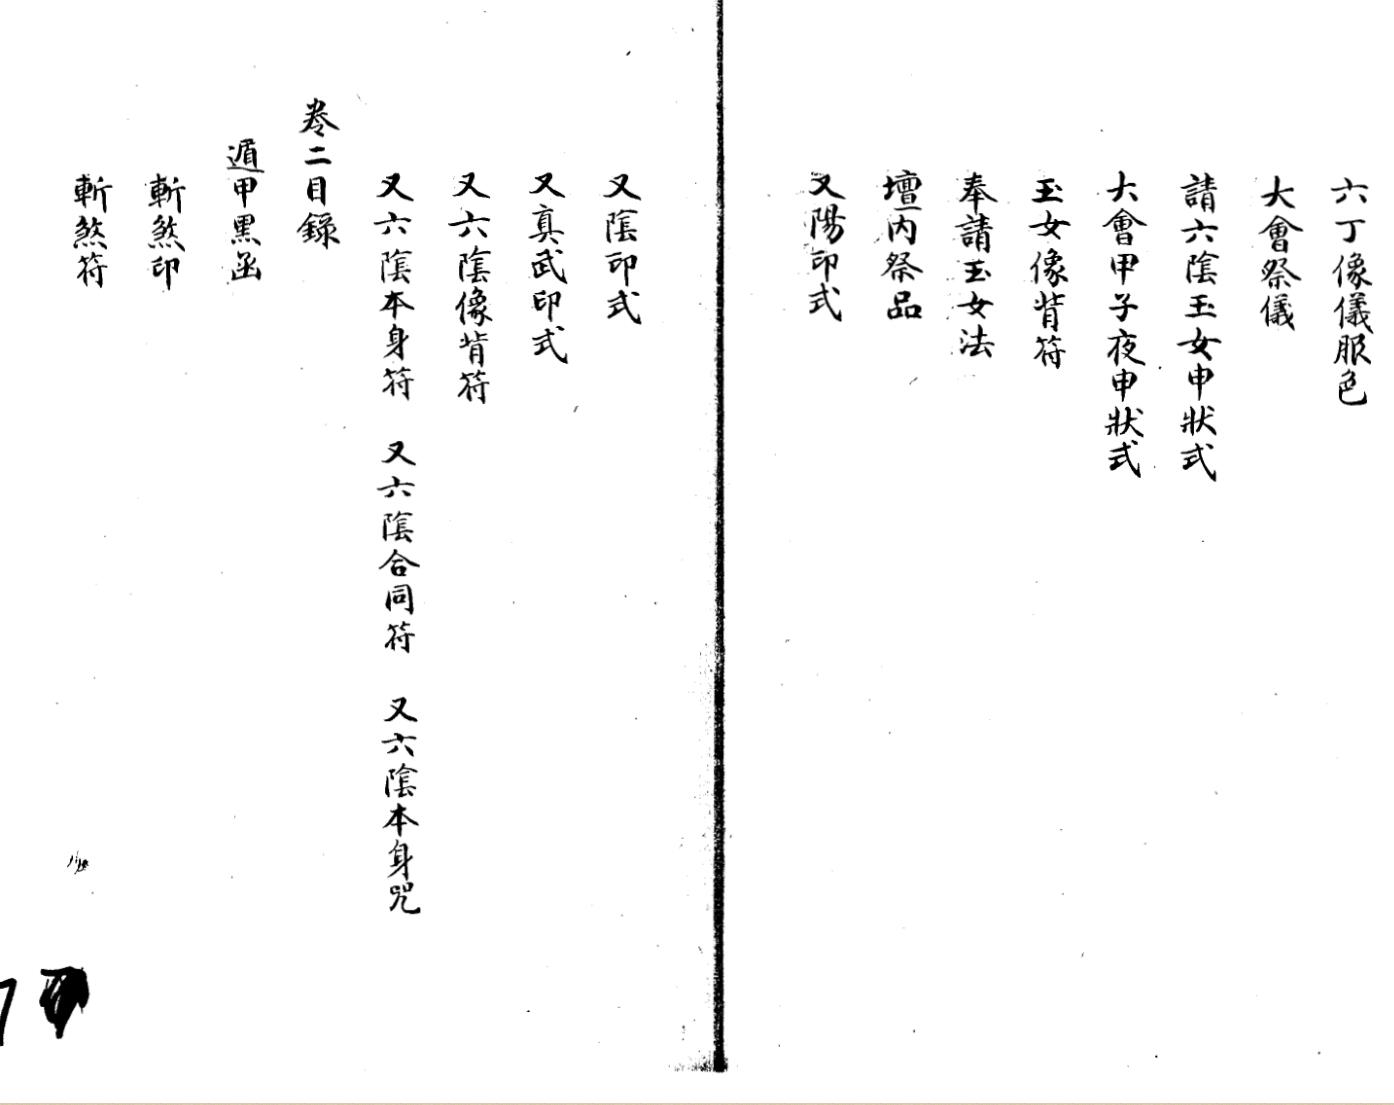 六丁像儀服色
大會祭儀
請六陰玉女申狀式
大會甲子夜申狀式
玉女像背符
奉請玉女法
壇内祭品
又陽印式
又陰印式
又真武印式
又六陰像背符
又六陰本身符 又六陰合同符 又六陰本身咒
卷二目錄
遁甲黑函
斬煞印
斬煞符